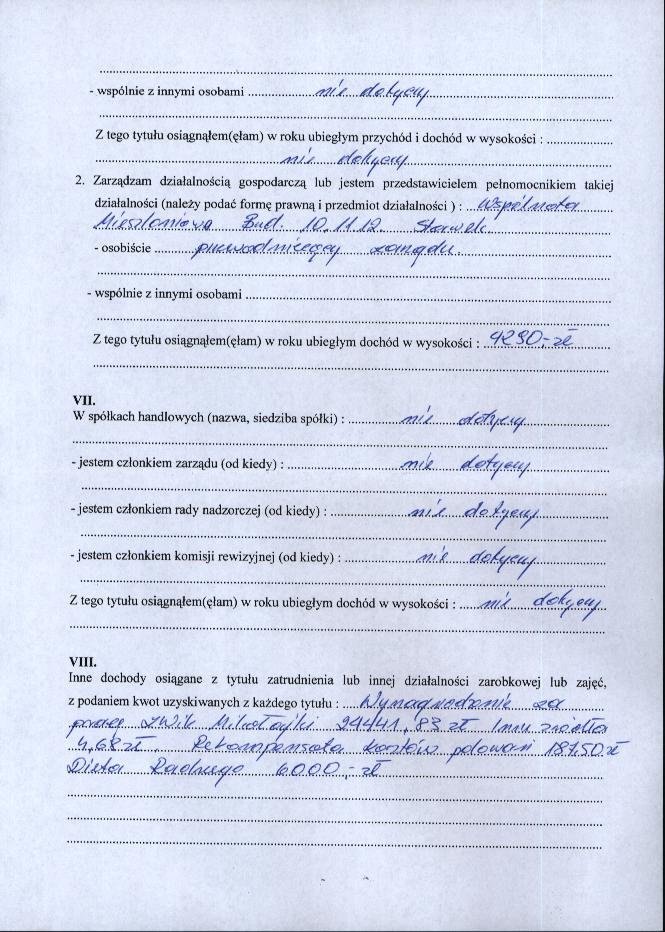 - wspólnie z innymi osobami nie dotyczy
Z tego tytułu osiągnąłem(ęłam) w roku ubiegłym przychód i dochód w wysokości :
nie dotyczy
2. Zarządzam działalnością gospodarczą lub jestem przedstawicielem pełnomocnikiem takiej
działalności (należy podać formę prawną i przedmiot działalności ) : Wspólnota
Mieszkaniowa Bud. 10.11.12. Sławek
- osobiście przewodniczący zarządu.
- wspólnie z innymi osobami
Z tego tytułu osiągnąłem(ęłam) w roku ubiegłym dochód w wysokości : 4290,- zł
VII.
W spółkach handlowych (nazwa, siedziba spółki) : nie dotyczy
- jestem członkiem zarządu (od kiedy) : nie dotyczy
- jestem członkiem rady nadzorczej (od kiedy) : nie dotyczy
- jestem członkiem komisji rewizyjnej (od kiedy) : nie dotyczy
Z tego tytułu osiągnąłem(ęłam) w roku ubiegłym dochód w wysokości : nie dotyczy
VIII.
Inne dochody osiągane z tytułu zatrudnienia lub innej działalności zarobkowej lub zajęć,
z podaniem kwot uzyskiwanych z każdego tytułu : Wynagrodzenie za
pracę ZWiK Mikołajki 94441,83 zł Inne źródła
4,68 zł. Rekompensata kosztów polowań 18750 zł
Dieta Radnego 6000,- zł